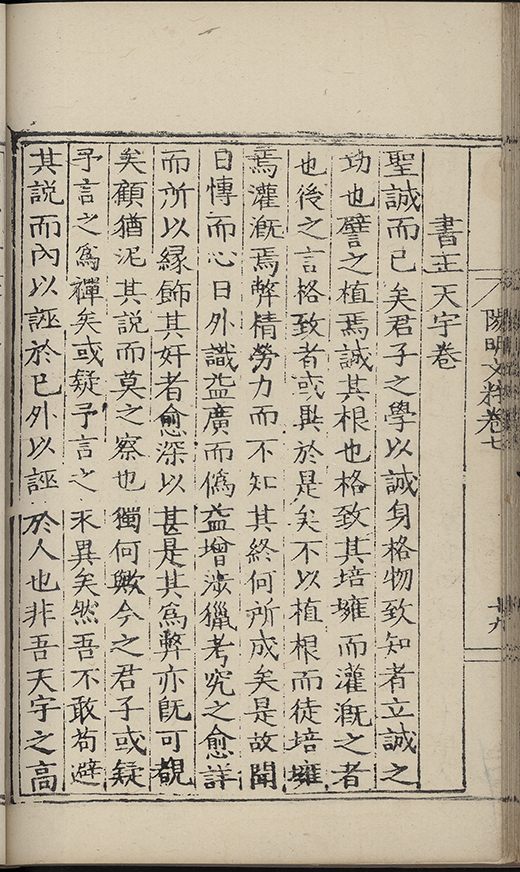 陽明文粹卷七
十九
書王天宇卷
聖誠而已矣君子之學以誠身格物致知者立誠之
功也譬之植焉誠其根也格致其培壅而灌漑之者
也後之言格致者或異於是矣不以植根而徒培壅
焉灌漑焉弊精勞力而不知其終何所成矣是故聞
日慱而心日外識益廣而僞益增涉獵考究之愈詳
而所以緣飾其奸者愈深以甚是其爲弊亦旣可覩
矣顧猶泥其說而莫之察也獨何歟今之君子或疑
予言之爲禪矣或疑予言之求異矣然吾不敢苟避
其說而內以誣於己外以誣於人也非吾天宇之高